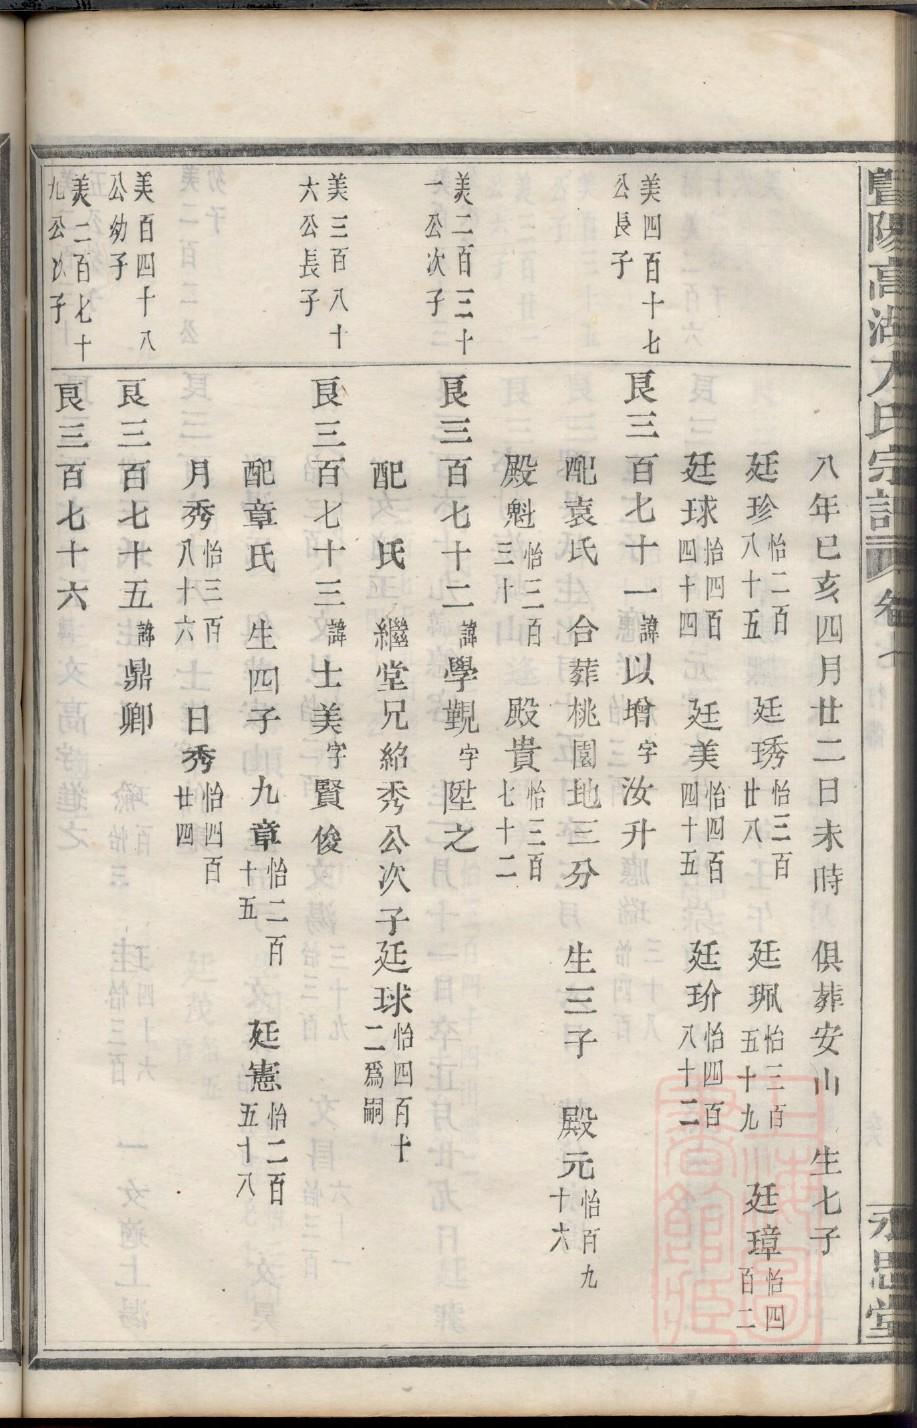 八年已亥四月廿二日未時 俱葬安山 生七子
廷珍怡二百八十五 廷琇怡三百廿八 廷珮怡三百五十九 廷璋怡四百二
廷球怡四百四十四 廷美怡四百四十五 廷玠怡四百八十二
美四百十七公長子
艮三百七十一諱以增字汝升
配袁氏 合葬桃園地三分 生三子 殿元怡百九十六
殿魁怡二百三十 殿貴怡三百七十二
美二百三十一公次子
艮三百七十二諱學覲字陞之
配 氏 繼堂兄紿秀公次子廷球怡四百十二爲嗣
美三百八十六公長子
艮三百七十三諱士美字賢俊
配章氏 生四子 九章怡二百十五 廷憲怡二百五十八
月秀怡三百八十六 日秀怡四百廿四
美百四十八公幼子
艮三百七十五諱鼎卿
美二百七十九公次子
艮三百七十六